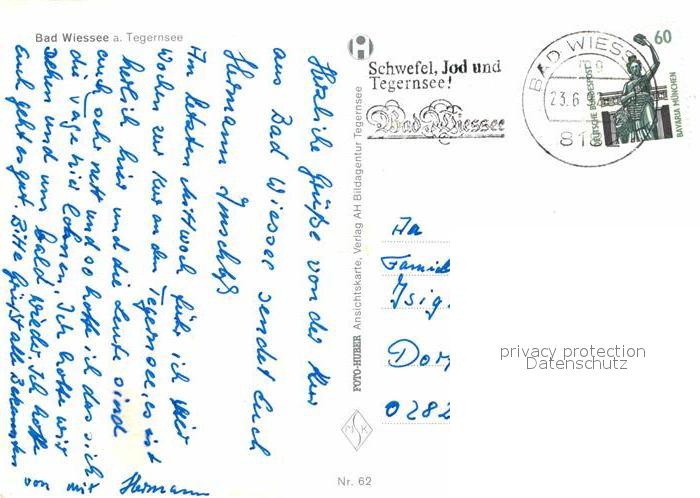 Bad Wiessee a. Tegernsee
Herzliche Grüße von der Kur
aus Bad Wiessee sendet Euch
Hermann
Am letzten Mittwoch fuhr ich vier
Wochen zur Kur an den Tegernsee, es ist
herlich hier und die Leute sind
auch sehr nett und so hoffe ich das sich
die Tage hier lohnen. Ich hoffe wir
sehen und uns bald wieder. Ich hoffe
Euch geht es gut. Bitte Grüßt alle Bekannten
von mir
Hermann
FOTO-HUBER Ansichtskarte, Verlag AH Bildagentur Tegernsee
Schwefel, Jod und
Tegernsee!
Bad Wiessee
BAD WIESS
23.6
818
60
DEUTSCHE BUNDESPOST
BAVARIA MÜNCHEN
An
Famil
Isig
Dor
0282
privacy protection
Datenschutz
Nr. 62